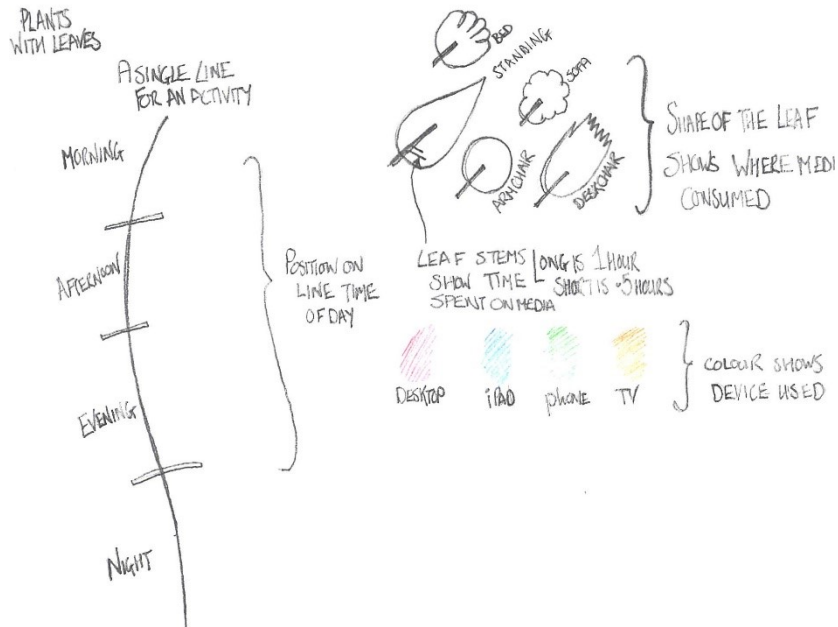 PLANTS
WITH LEAVES
A SINGLE LINE
FOR AN ACTIVITY
MORNING
AFTERNOON
EVENING
NIGHT
POSITION ON
LINE TIME
OF DAY
BED
STANDING
SOFA
ARMCHAIR
DESKCHAIR
SHAPE OF THE LEAF
SHOWS WHERE MEDI
CONSUMED
LEAF STEMS
SHOW TIME
SPENT ON MEDIA
LONG IS 1 HOUR
SHORT IS .5 HOURS
DESKTOP
iPAD
phone
TV
COLOUR SHOWS
DEVICE USED